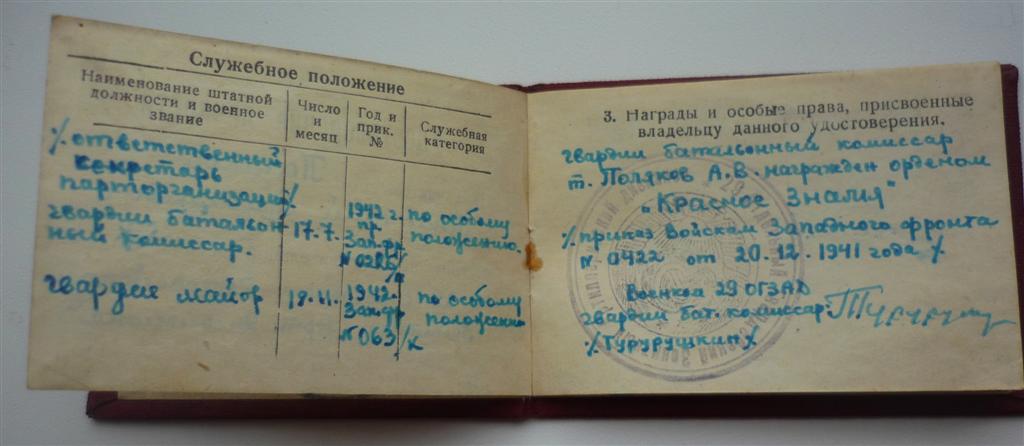 Служебное положение
Наименование штатной должности и военное звание
Число и месяц
Год и прик. №
Служебная категория
% ответственный
секретарь
парторганизации %
гвардии батальон-
ный комиссар.
17.7.
1942 г.
пр.
Зап.фр.
по особому
положению.
гвардии майор
18.11.
1942.
Зап.фр.
№ 063/к
по особому
положению
3. Награды и особые права, присвоенные
владельцу данного удостоверения.
гвардии батальонный комиссар
т. Поляков А.В. награжден орденом
"Красное Знамя"
% приказ Войскам Западного фронта
№ 0422 от 20.12.1941 года %
Военком 29 ОГЗАД
гвардии бат. комиссар
% Турурушкин %